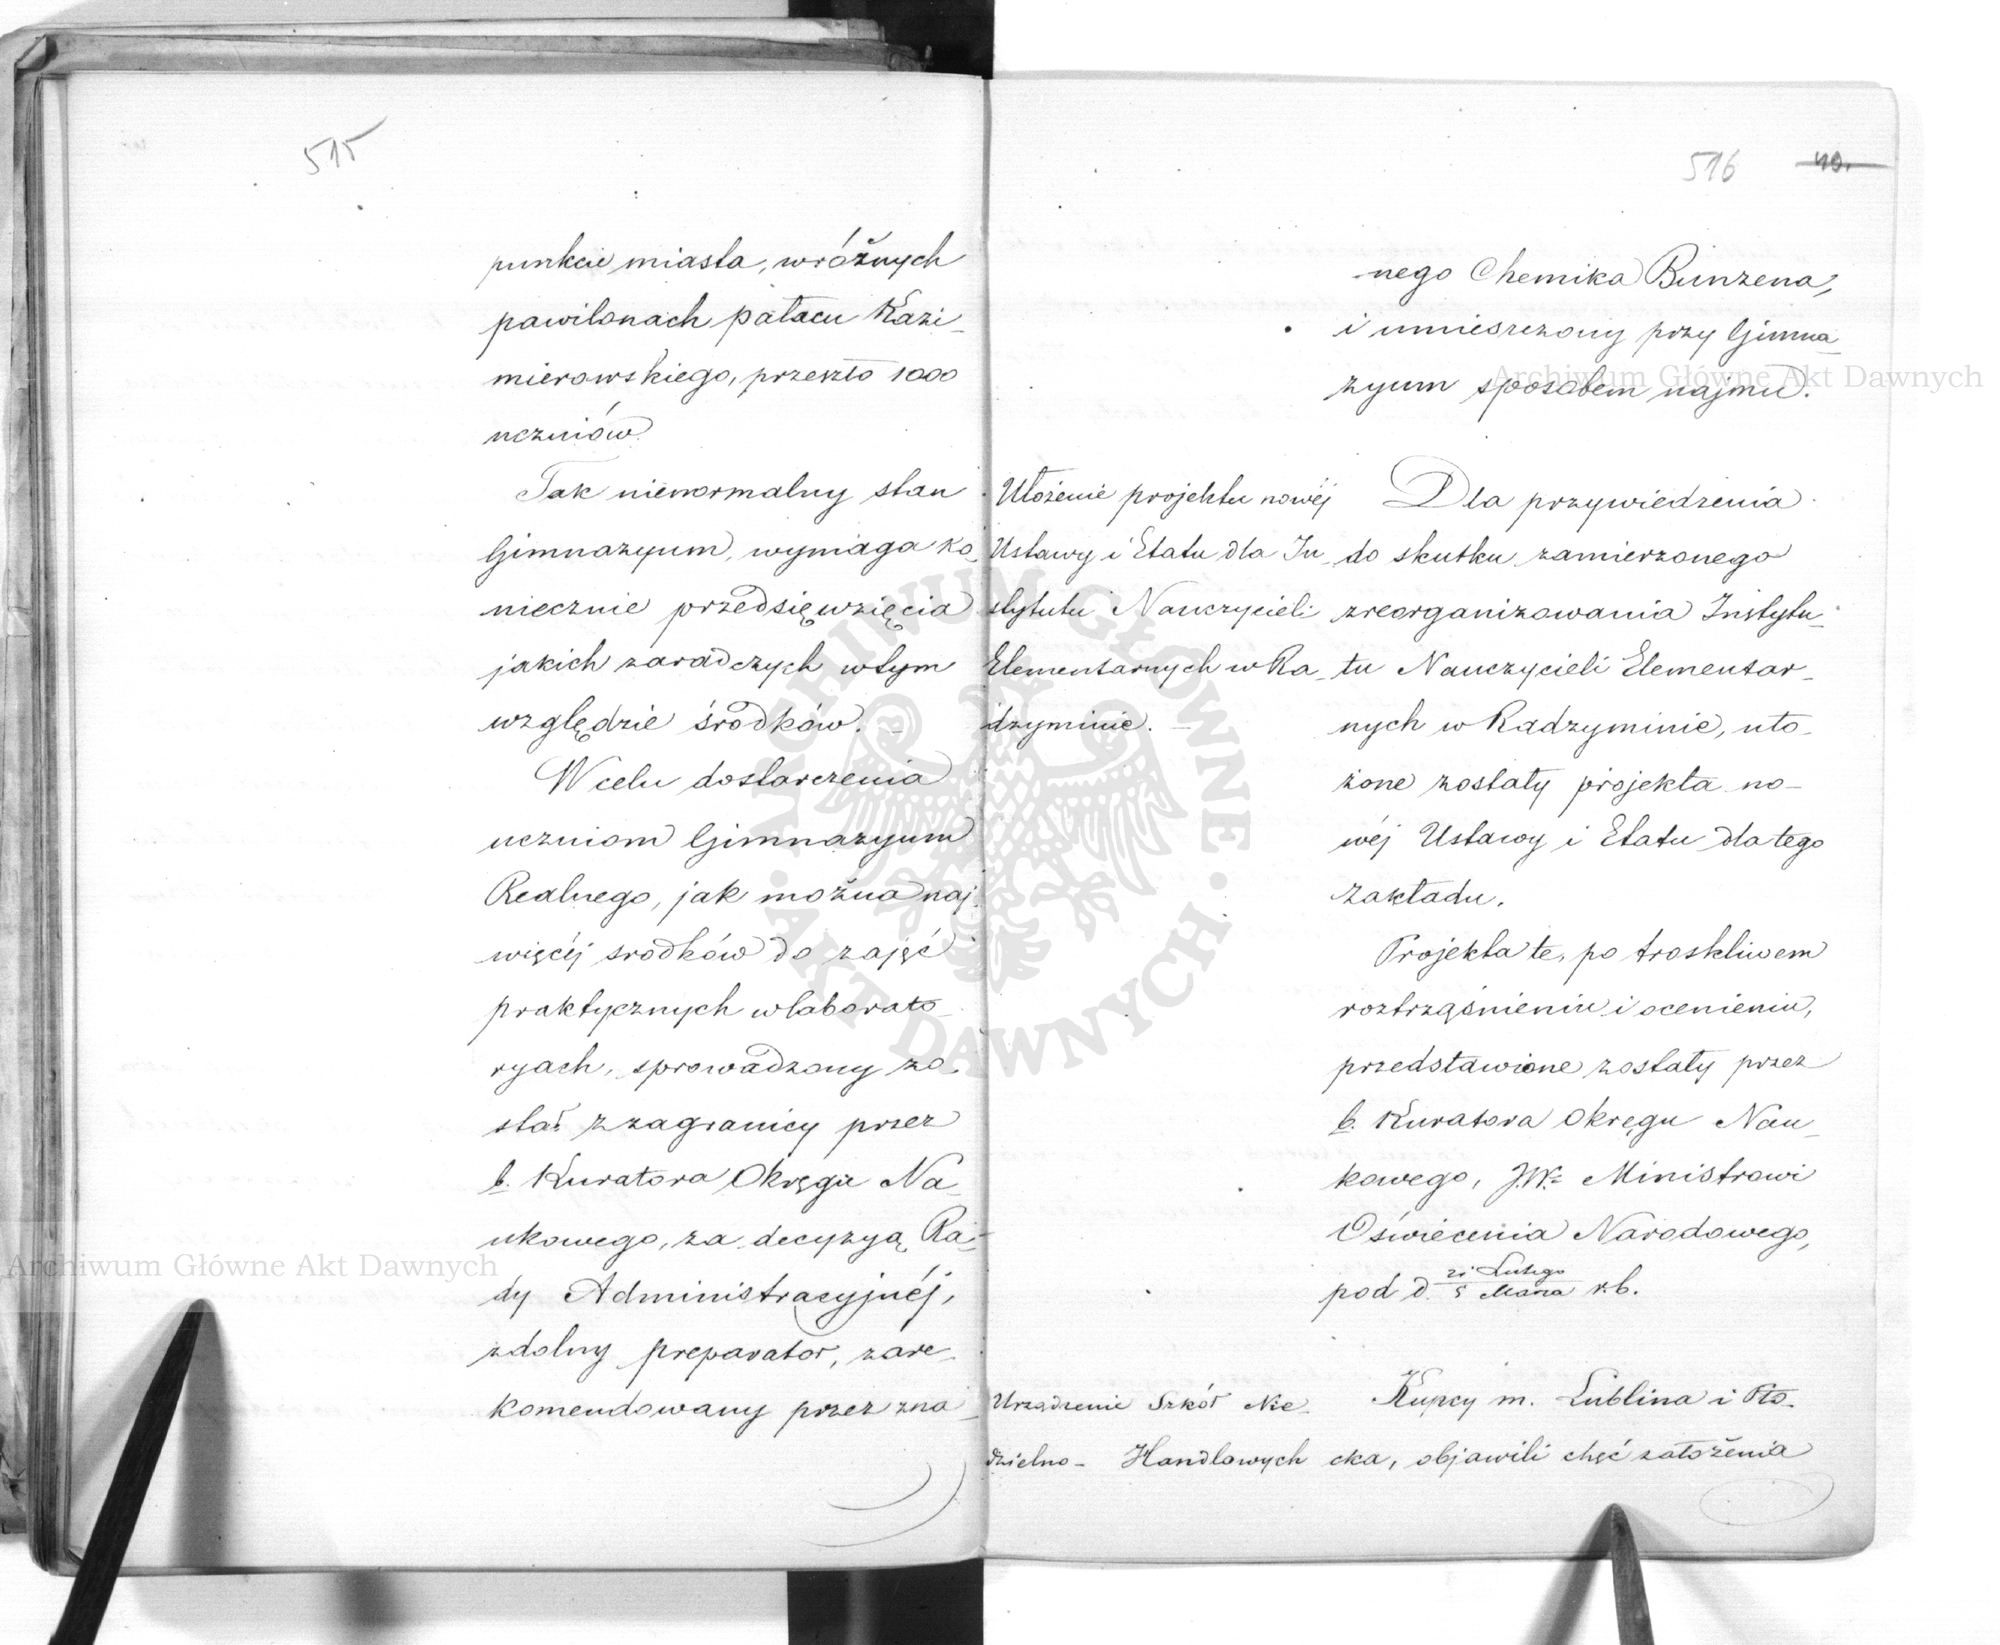 515
punkcie miasta, w różnych
pawilonach pałacu Kazi-
mierowskiego, przeszło 1000
uczniów.
Tak nienormalny stan
Gimnazyum, wymaga ko-
niecznie przedsięwzięcia
jakich zaradczych w tym
względzie środków. –
W celu dostarczenia
uczniom Gimnazyum
Realnego, jak można naj-
więcéj srodków do zajęć
praktycznych w laborato-
ryach, sprowadzony zo-
stał z zagranicy przez
b. Kuratora Okręgu Na-
ukowego, za decyzyą Ra-
dy Administracyjnéj,
zdolny preparator, zare-
komendowany przez zna-
516 49.
nego Chemika Bunzena,
i umieszczony przy Gimna-
zyum sposobem najmu.
Ułożenie projektu nowéj
Ustawy i Etatu dla In-
stytutu Nauczycieli
Elementarnych w Ra-
dzyminie. –
Dla przywiedzenia
do skutku zamierzonego
zreorganizowania Instytu-
tu Nauczycieli Elementar-
nych w Radzyminie, uło-
żone zostały projekta no-
wéj Ustawy i Etatu dla tego
zakładu.
Projekta te, po troskliwem
roztrząśnieniu i ocenieniu,
przedstawione zostały przez
b. Kuratora Okręgu Nau-
kowego, J.W. Ministrowi
Oświecenia Narodowego,
21 Lutego
pod d. 5 Marca r. b.
Urządzenie Szkół Nie-
dzielno- Handlowych
Kupcy m. Lublina i Pło-
cka, objawili chęć założenia
Archiwum Główne Akt Dawnych
Archiwum Główne Akt Dawnych
ARCHIWUM GŁÓWNE · AKT DAWNYCH ·